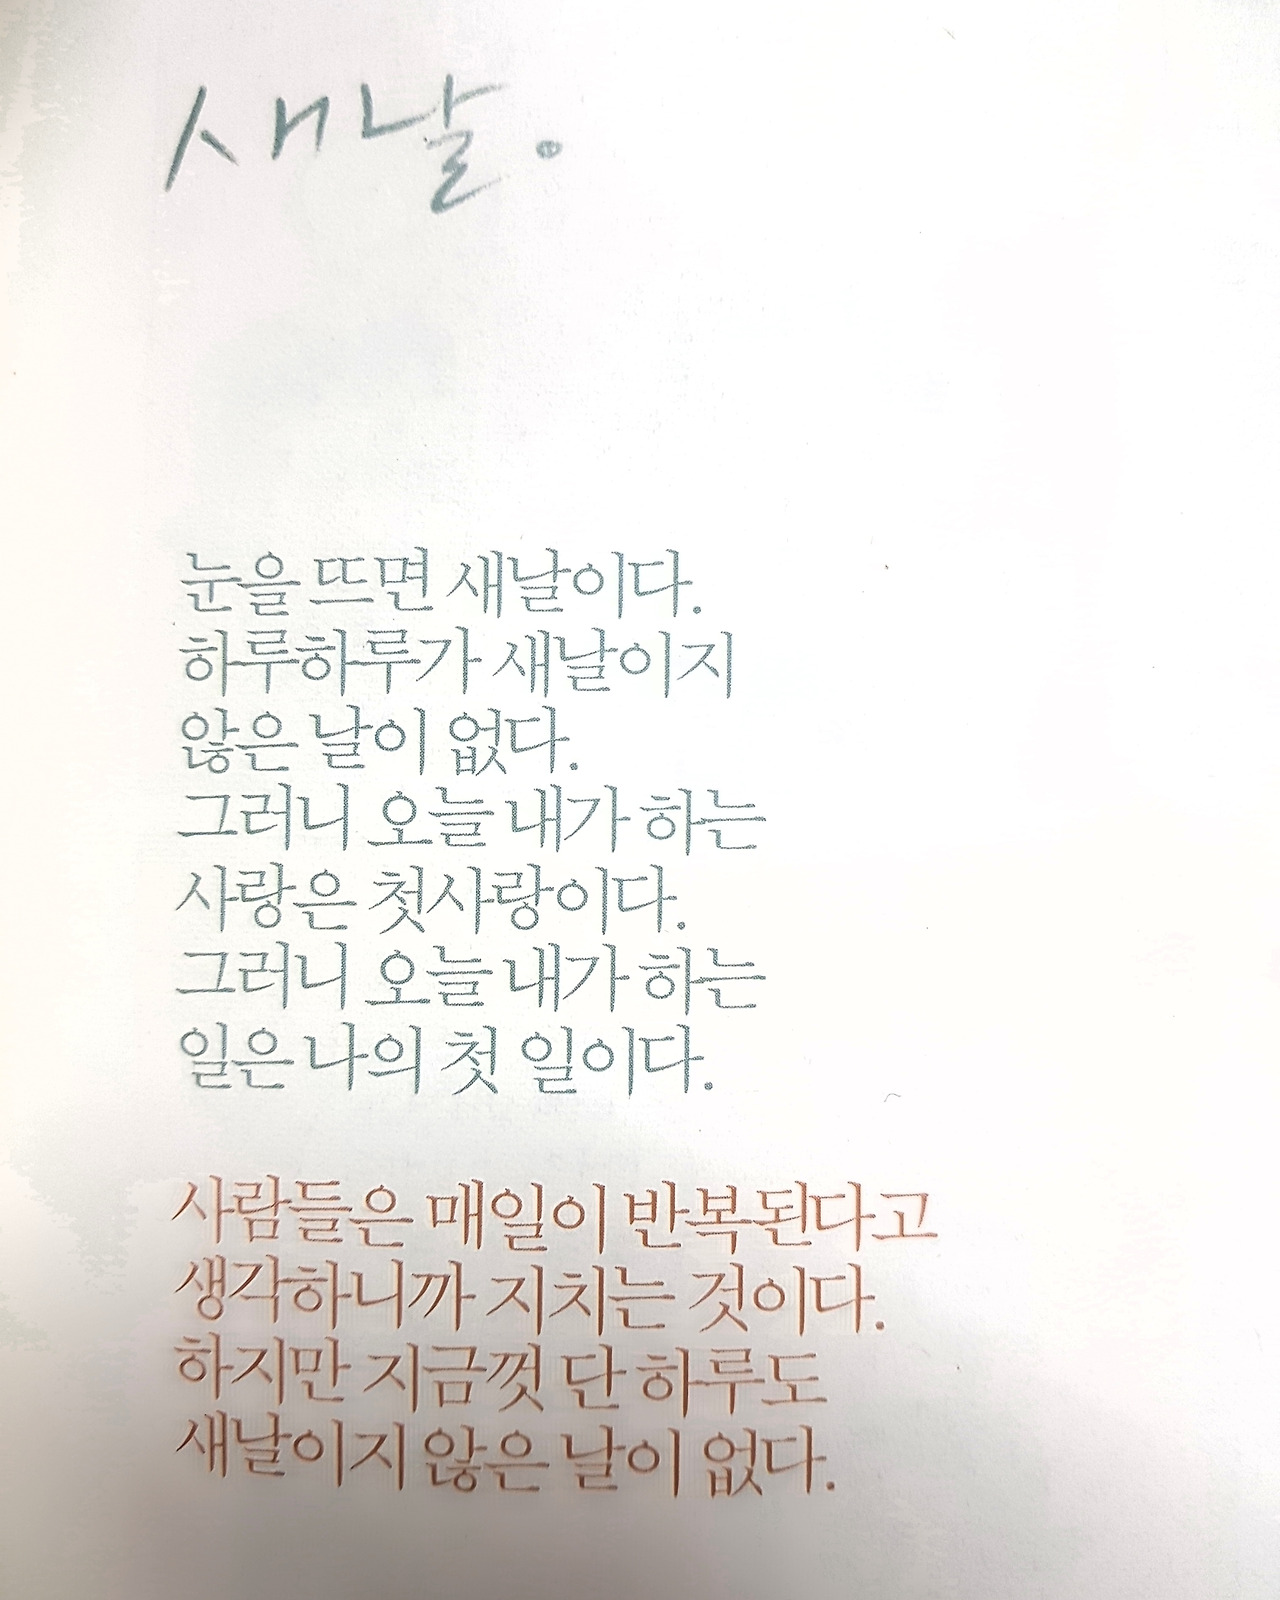 새날.
눈을 뜨면 새날이다.
하루하루가 새날이지
않은 날이 없다.
그러니 오늘 내가 하는
사랑은 첫사랑이다.
그러니 오늘 내가 하는
일은 나의 첫 일이다.
사람들은 매일이 반복된다고
생각하니까 지치는 것이다.
하지만 지금껏 단 하루도
새날이지 않은 날이 없다.